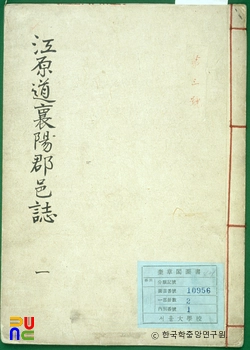 江原道襄陽郡邑誌
一
奎章閣圖書
10956
2
1
서울大學校
PUNC
ⓒ 한국학중앙연구원